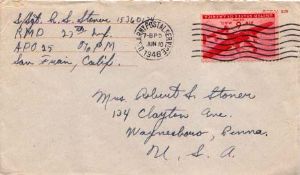 S/Sgt. R. S. Stoner
RMD 27th Inf.
APO 25 % P.M.
San Fran., Calif.
U.S. ARMY POSTAL SERVICE
JUN 10
1948
Mrs Robert S. Stoner
124 Clayton Ave.
Waynesboro, Penna.
U. S. A.